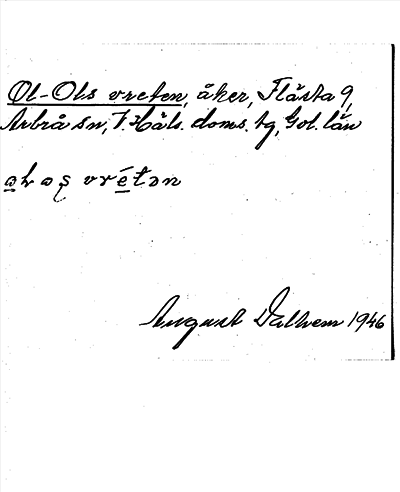 Ol-Ols vreten, åker, Flästa 9,
Arbrå sn, V. Häls. doms. tg, Gvl. län
August Dalhem 1946